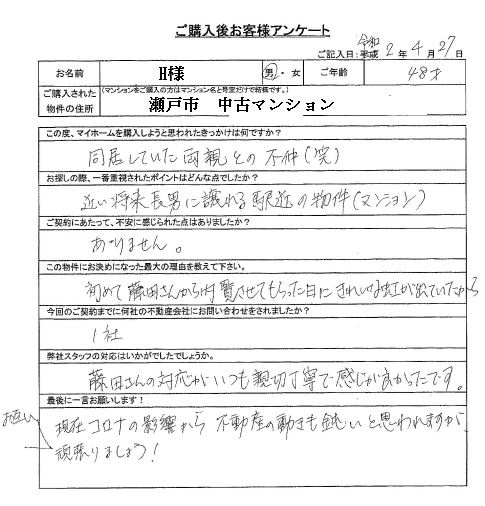 ご購入後お客様アンケート
ご記入日:平成 令和 2年4月27日
お名前 H様 男・女 ご年齢 48才
ご購入された物件の住所 (マンションをご購入の方はマンション名と号室だけで結構です。)
瀬戸市 中古マンション
この度、マイホームを購入しようと思われたきっかけは何ですか?
同居していた両親との不仲(笑)
お探しの際、一番重視されたポイントはどんな点でしたか?
近い将来長男に譲れる駅近の物件(マンション)
ご契約にあたって、不安に感じられた点はありましたか?
ありません。
この物件にお決めになった最大の理由を教えて下さい。
初めて藤田さんから内覧させてもらった日にきれいな虹が出ていたから
今回のご契約までに何社の不動産会社にお問い合わせをされましたか?
1社
弊社スタッフの対応はいかがでしたでしょうか。
藤田さんの対応がいつも親切丁寧で感じが良かったです。
最後に一言お願いします!
現在コロナの影響から不動産の動きも鈍いと思われますが、
頑張りましょう!